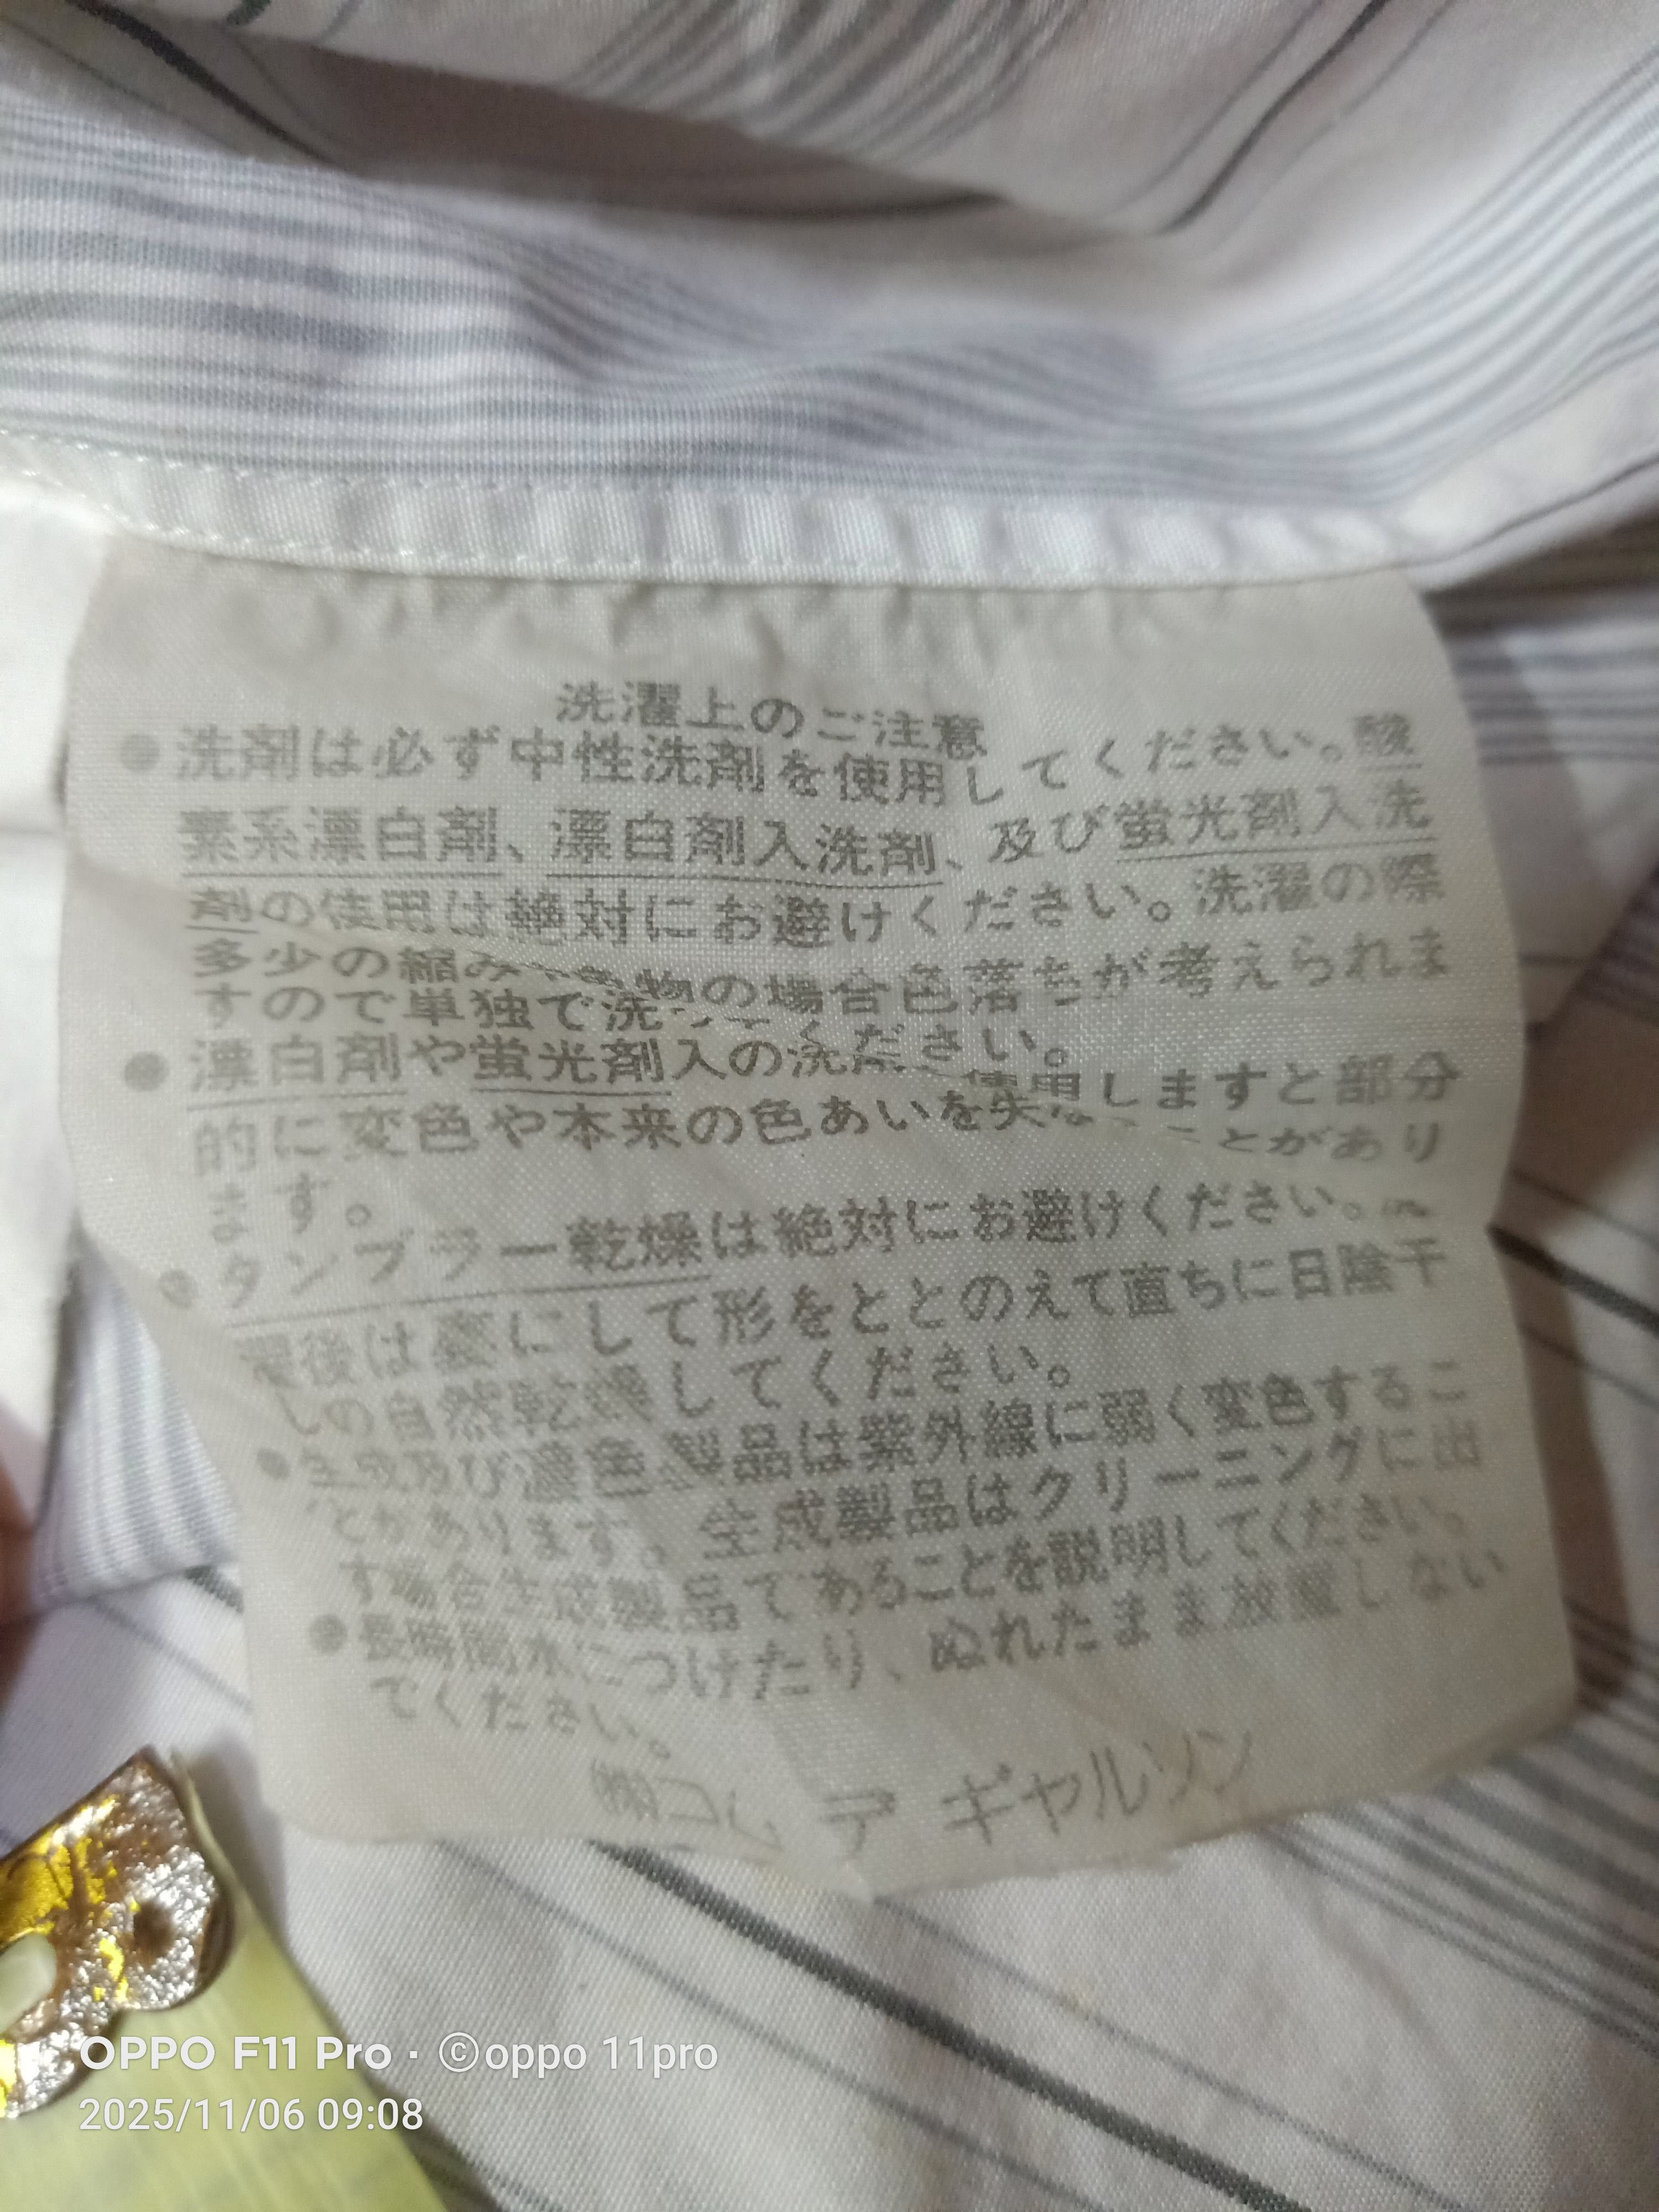 洗濯上のご注意
●洗剤は必ず中性洗剤を使用してください。酸
素系漂白剤、漂白剤入洗剤、及び蛍光剤入洗
剤の使用は絶対にお避けください。洗濯の際
多少の縮み 物の場合色落ちが考えられま
すので単独で洗ってください。
●漂白剤や蛍光剤入の洗 使用しますと部分
的に変色や本来の色あいを失 ことがあり
ます。
●タンブラー乾燥は絶対にお避けください。
濯後は にして形をととのえて直ちに日陰干
しの自然乾燥してください。
●生成及び濃色製品は紫外線に弱く変色するこ
とがあります。生成製品はクリーニングに出
す場合生成製品であることを説明してください。
●長時間水につけたり、ぬれたまま放置しない
でください。
㈱コム デ ギャルソン
OPPO F11 Pro · ©oppo 11pro
2025/11/06 09:08